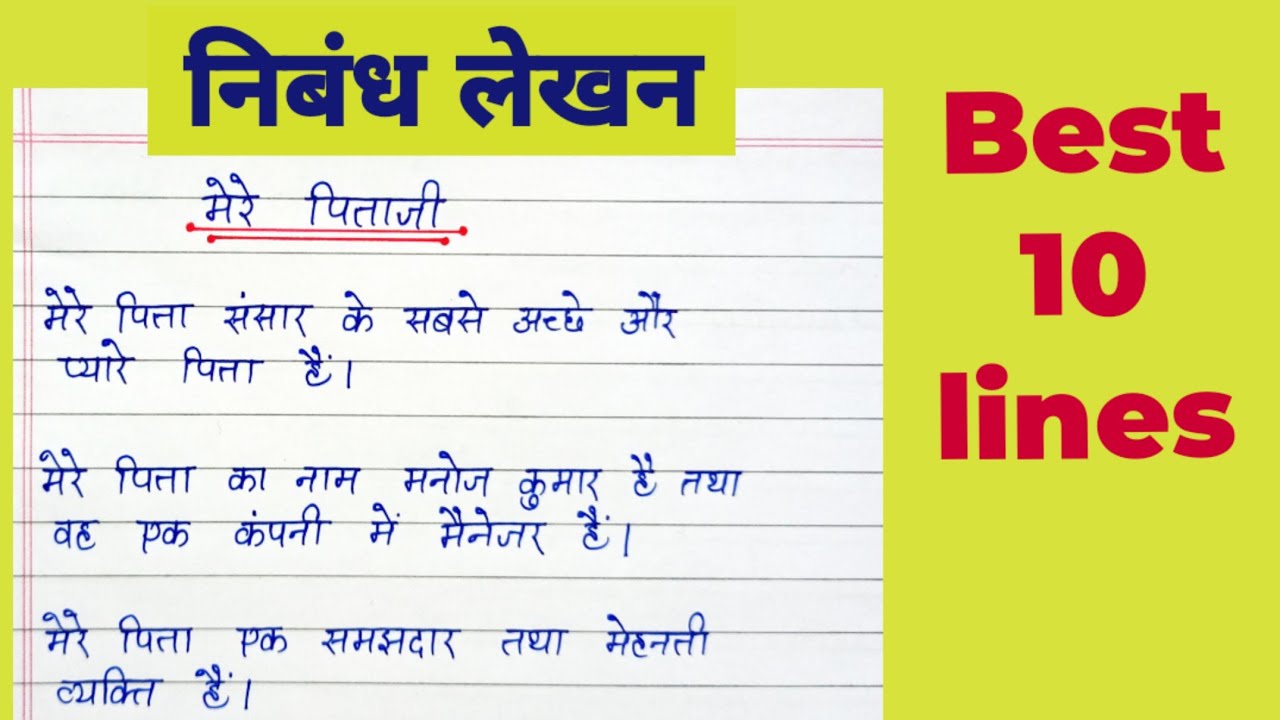 निबंध लेखन
Best
10
lines
मेरे पिताजी
मेरे पिता संसार के सबसे अच्छे और
प्यारे पिता हैं।
मेरे पिता का नाम मनोज कुमार है तथा
वह एक कंपनी में मैनेजर हैं।
मेरे पिता एक समझदार तथा मेहनती
व्यक्ति हैं।